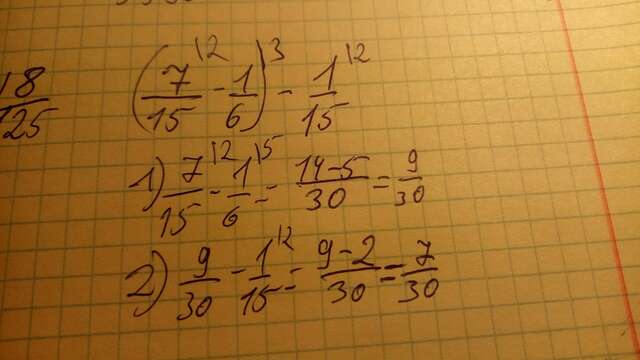 18/125
(7/15 ^12 - 1/6)^3 - 1/15 ^12
1) 7/15 ^12 - 1/6 ^15 = (14-5)/30 = 9/30
2) 9/30 - 1/15 ^12 = (9-2)/30 = 7/30